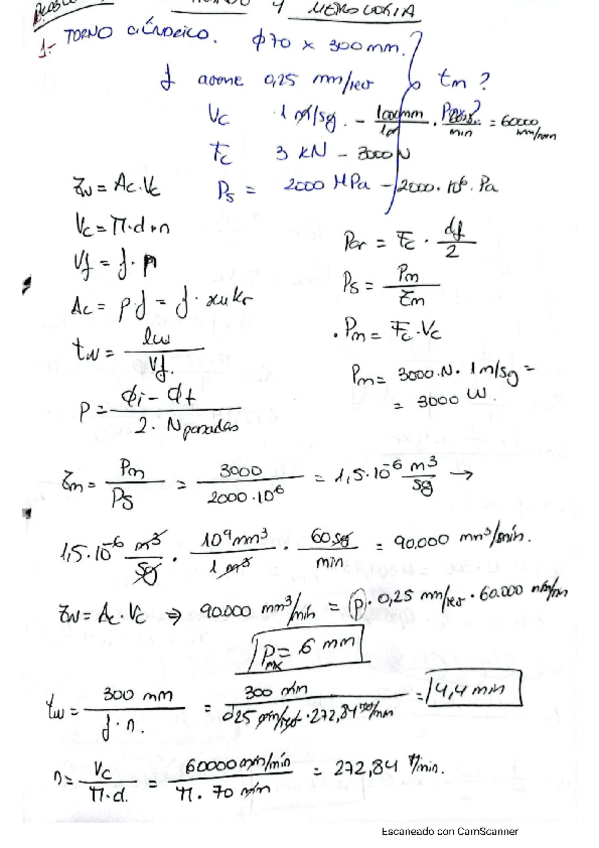 METROLOGIA
1- TORNO CILÍNDRICO. ϕ70 x 300 mm.
f avance 0,25 mm/rev tm ?
Vc 1 m/sg. - 1000mm/1m · 60sg/min = 60000 mm/min
Fc 3 KN - 3000 N
Zw = Ac·Vc Ps = 2000 MPa - 2000·10⁶ Pa
Vc = π·d·n
Par = Fc · df/2
Vf = f·n
Ps = Pm/Zm
Ac = p·f = f·
· Pm = Fc·Vc
tw = lw/Vf.
Pm = 3000 N · 1 m/sg =
= 3000 W.
P = ϕi - ϕf / 2·Npasadas
Zm = Pm/Ps = 3000/2000·10⁶ = 1,5·10⁻⁶ m³/sg →
1,5·10⁻⁶ m³/sg · 10⁹mm³/1 m³ · 60sg/min = 90.000 mm³/min.
Zw = Ac·Vc ⇒ 90.000 mm³/min = P · 0,25 mm/rev · 60.000 mm/min
Pmx = 6 mm
tw = 300 mm / f·n. = 300 mm / 0,25 mm/rev · 272,84 rev/min = 4,4 min
n = Vc/π·d. = 60000 mm/min / π·70 mm = 272,84 r/min.
Escaneado con CamScanner